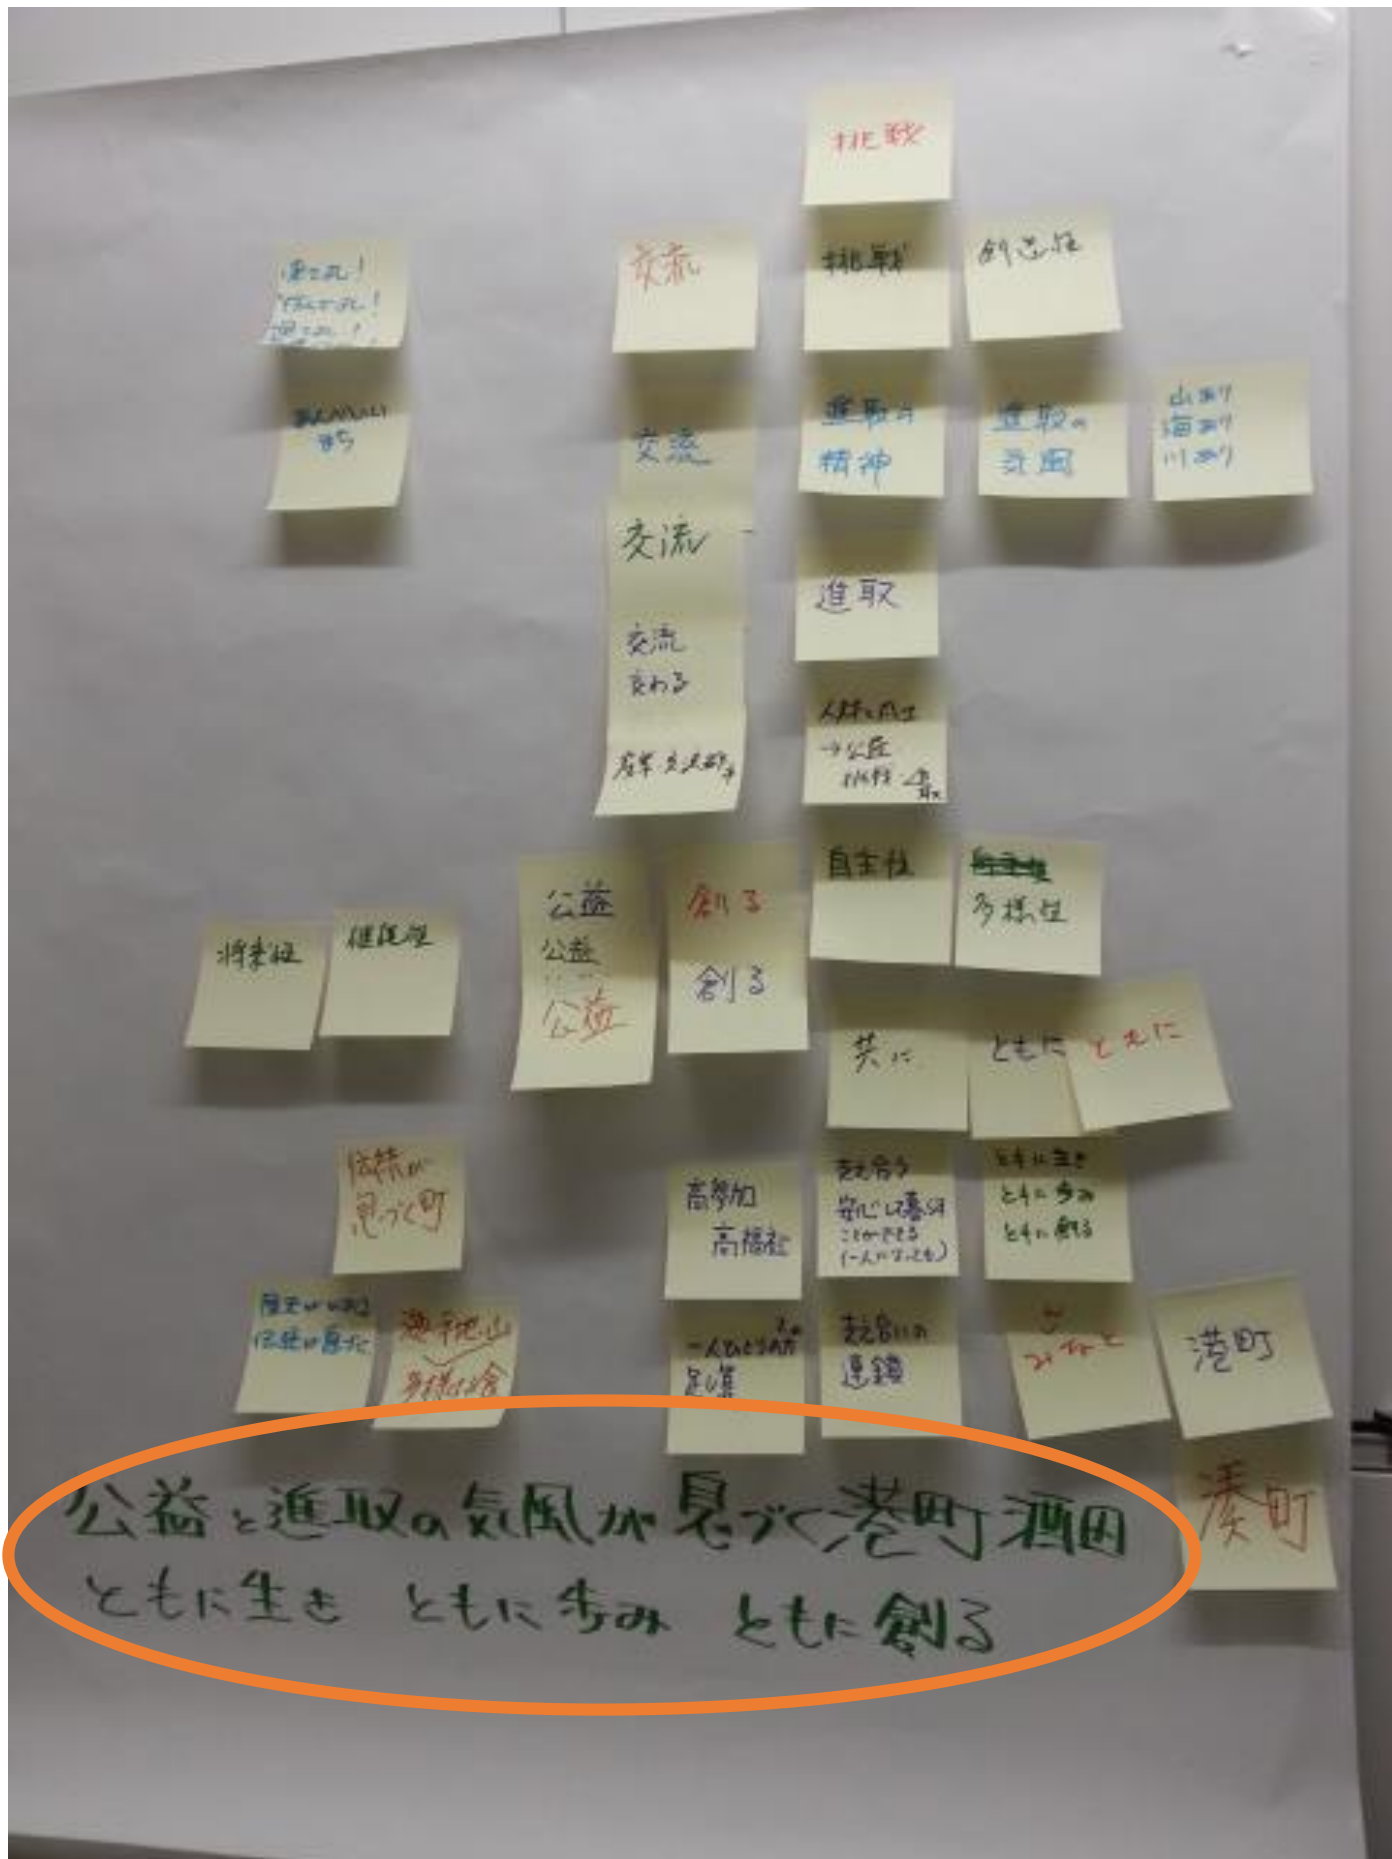 挑戦
交流
挑戦
創造性
まち
交流
進取の
精神
進取の
気風
山あり
海あり
川あり
交流
進取
交流
交わる
→公益
公益
公益
公益
創る
創る
自主性
多様性
将来性
継続性
共に
ともに
ともに
伝統が
息づく町
高参加
高福祉
支え合う
安心して暮らす
ことができる
(一人になっても)
ともに生き
ともに歩み
ともに創る
支え合いの
連鎖
みなと
港町
湊町
公益と進取の気風が息づく港町酒田
ともに生き ともに歩み ともに創る